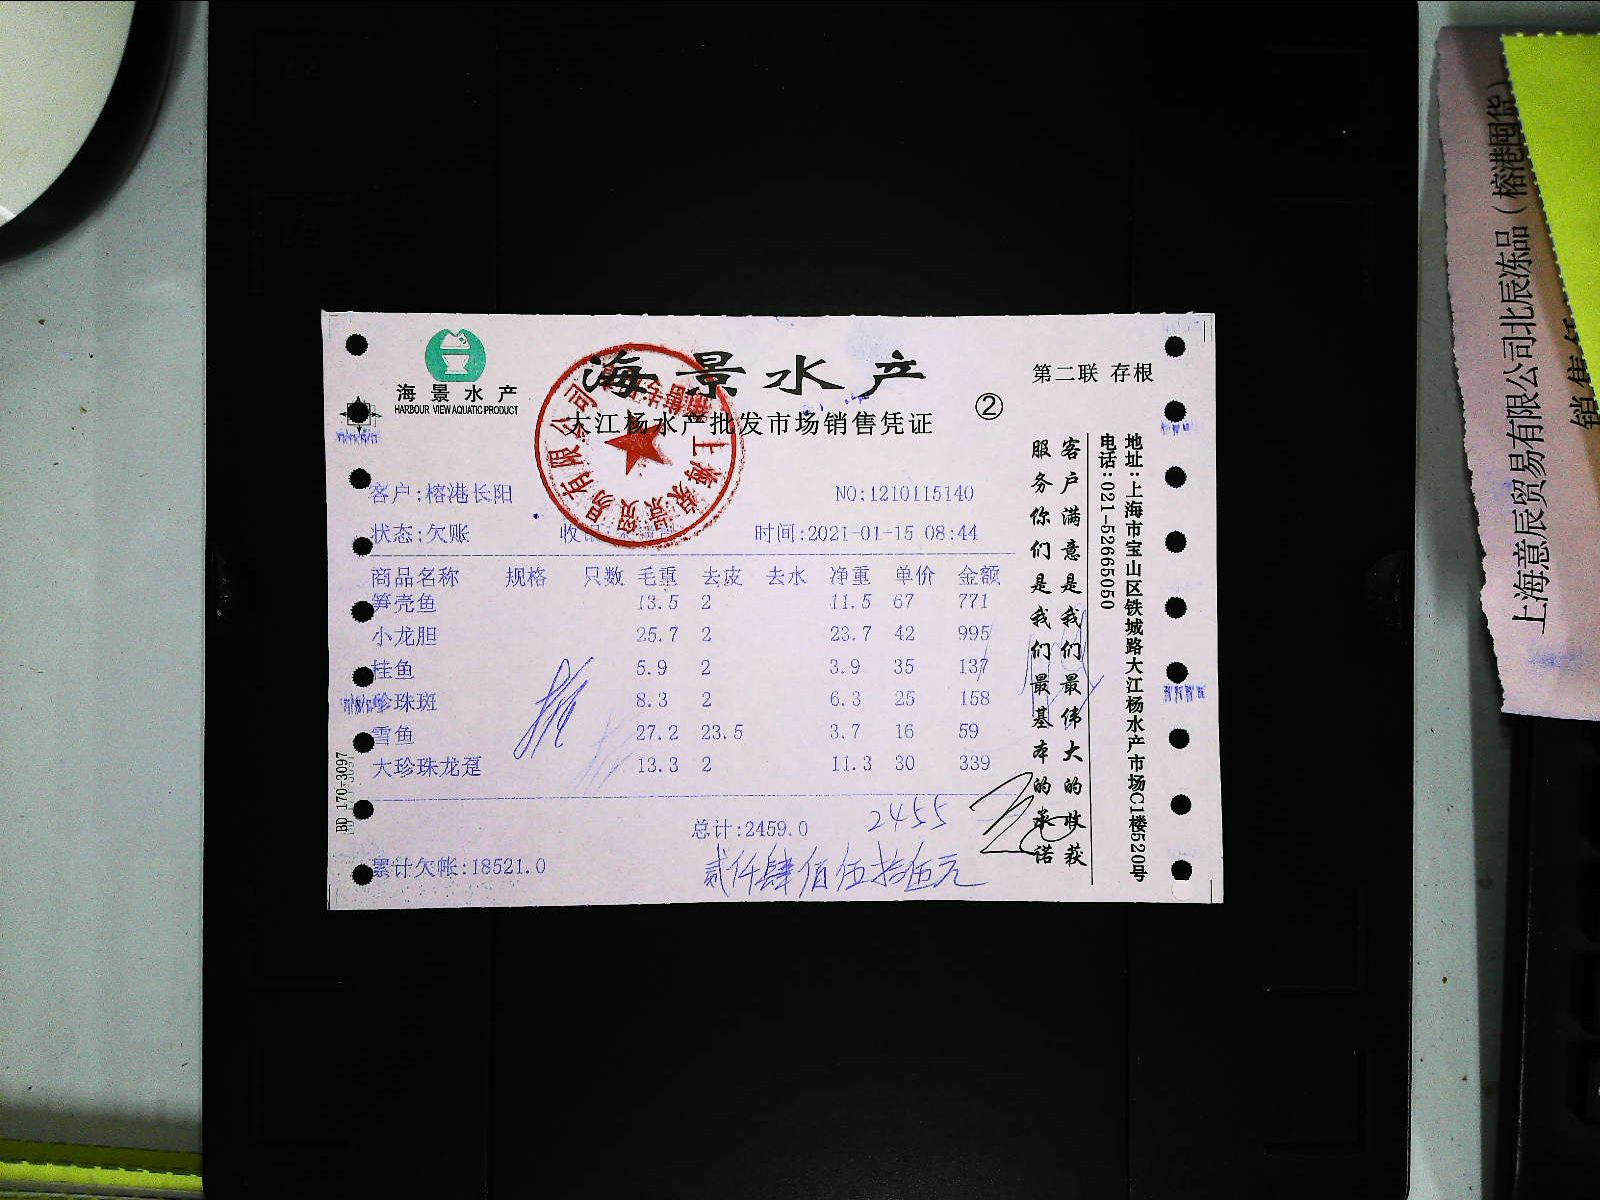 海景水产
HARBOUR VIEW AQUATIC PRODUCT
海景水产
大江杨水产批发市场销售凭证
②
第二联 存根
客户:榕港长阳
NO:1210115140
状态:欠账
收
时间:2021-01-15 08:44
商品名称 规格 只数 毛重 去皮 去水 净重 单价 金额
笋壳鱼 13.5 2 11.5 67 771
小龙胆 25.7 2 23.7 42 995
桂鱼 5.9 2 3.9 35 137
珍珠斑 8.3 2 6.3 25 158
雪鱼 27.2 23.5 3.7 16 59
大珍珠龙趸 13.3 2 11.3 30 339
总计:2459.0
2455
累计欠帐:18521.0
贰仟肆佰伍拾伍元
客户满意是我们最伟大的收获
服务你们是我们最基本的承诺
地址:上海市宝山区铁城路大江杨水产市场C1楼520号
电话:021-52665050
BD 170-3097
上海意辰贸易有限公司北辰冻品(榕港囤货)
销售